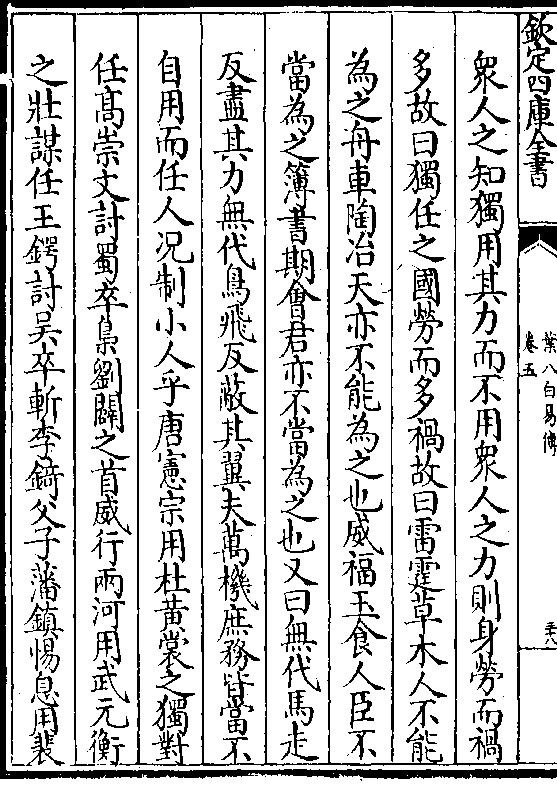 欽定四庫全書
葉八白易傳
卷五
眾人之知獨用其力而不用眾人之力則身勞而禍
多故曰獨任之國勞而多禍故曰雷霆草木人不能
為之舟車陶冶天亦不能為之也威福玉食人臣不
當為之簿書期會君亦不當為之也又曰無代馬走
反盡其力無代鳥飛反蔽其翼夫萬機庶務皆當不
自用而任人况制小人乎唐憲宗用杜黃裳之獨對
任髙崇文討蜀卒梟劉闢之首威行兩河用武元衡
之壯謀任王鍔討吳卒斬李錡父子藩鎮惕息用裴